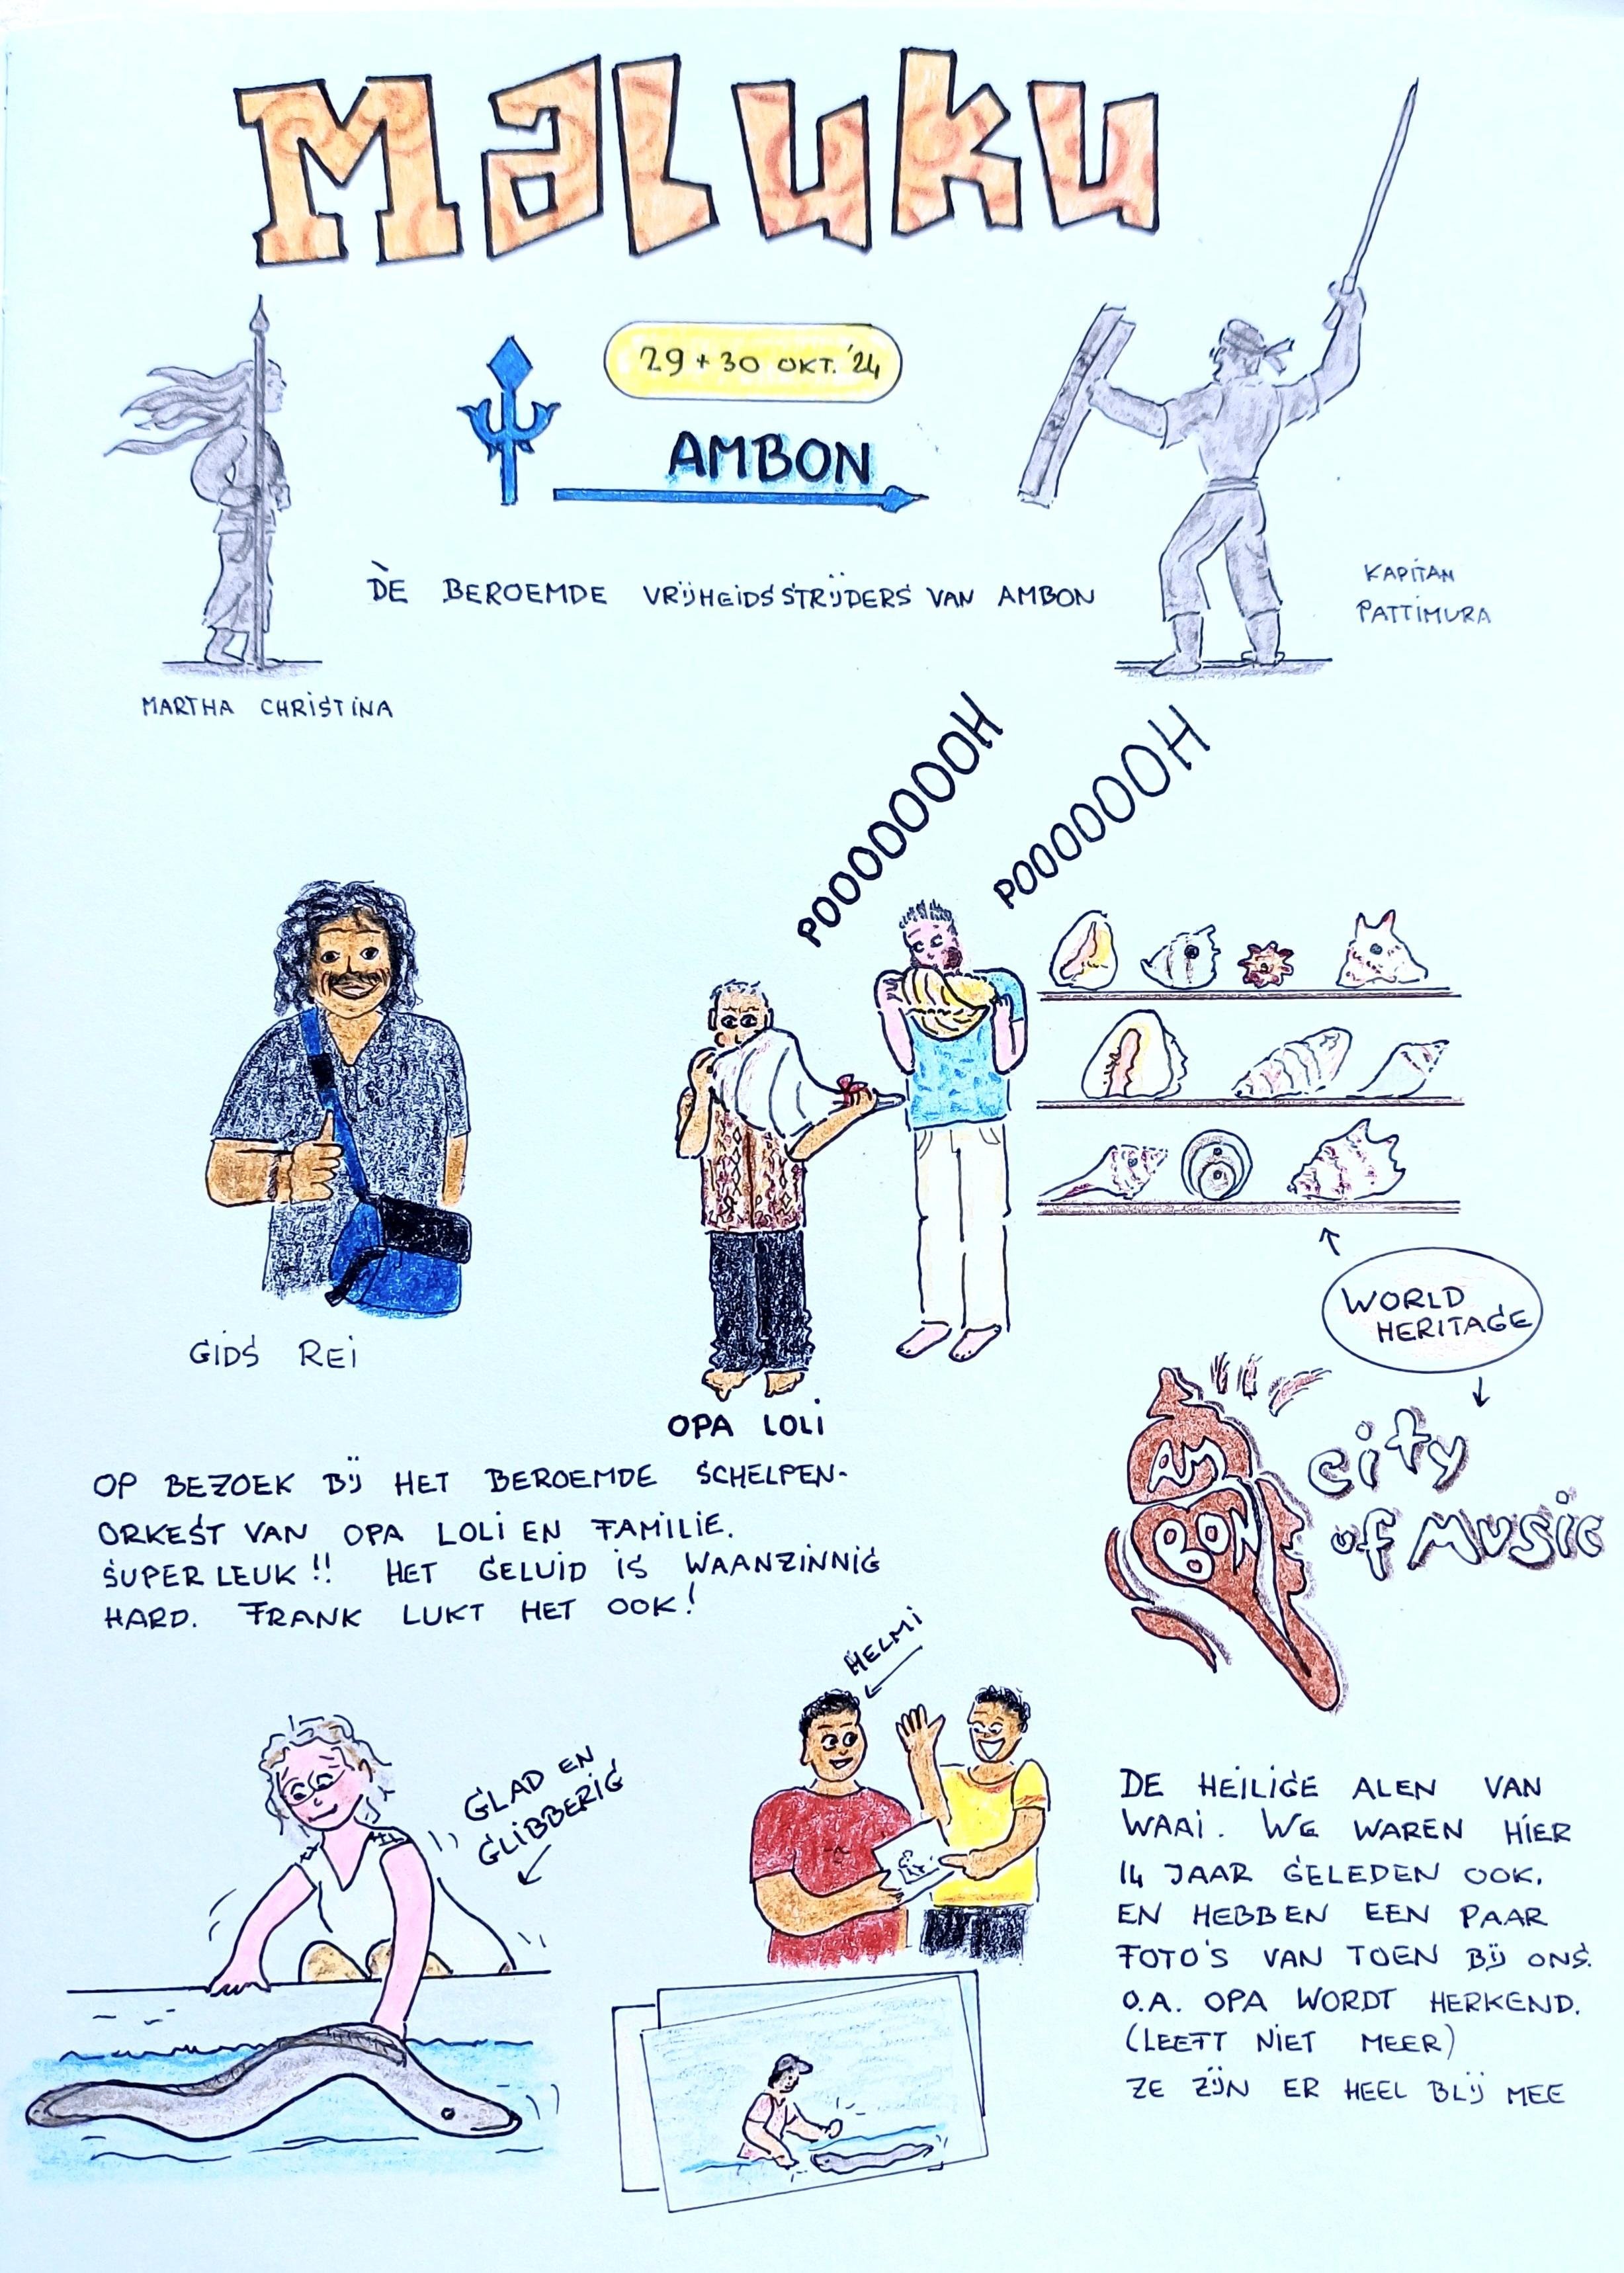 MALUKU
29 + 30 OKT. '24
AMBON
DÈ BEROEMDE VRIJHEIDSSTRIJDERS VAN AMBON
KAPITAN
PATTIMURA
MARTHA CHRISTINA
POOOOOOOOH
POOOOOOOH
GIDS REI
OPA LOLI
WORLD
HERITAGE
AM
BON
city
of Music
OP BEZOEK BIJ HET BEROEMDE SCHELPEN-
ORKEST VAN OPA LOLI EN FAMILIE.
SUPER LEUK!! HET GELUID IS WAANZINNIG
HARD. FRANK LUKT HET OOK!
HELMI
GLAD EN
GLIBBERIG
DE HEILIGE ALEN VAN
WAAI. WE WAREN HIER
14 JAAR GELEDEN OOK,
EN HEBBEN EEN PAAR
FOTO'S VAN TOEN BIJ ONS.
O.A. OPA WORDT HERKEND.
(LEEFT NIET MEER)
ZE ZIJN ER HEEL BLIJ MEE